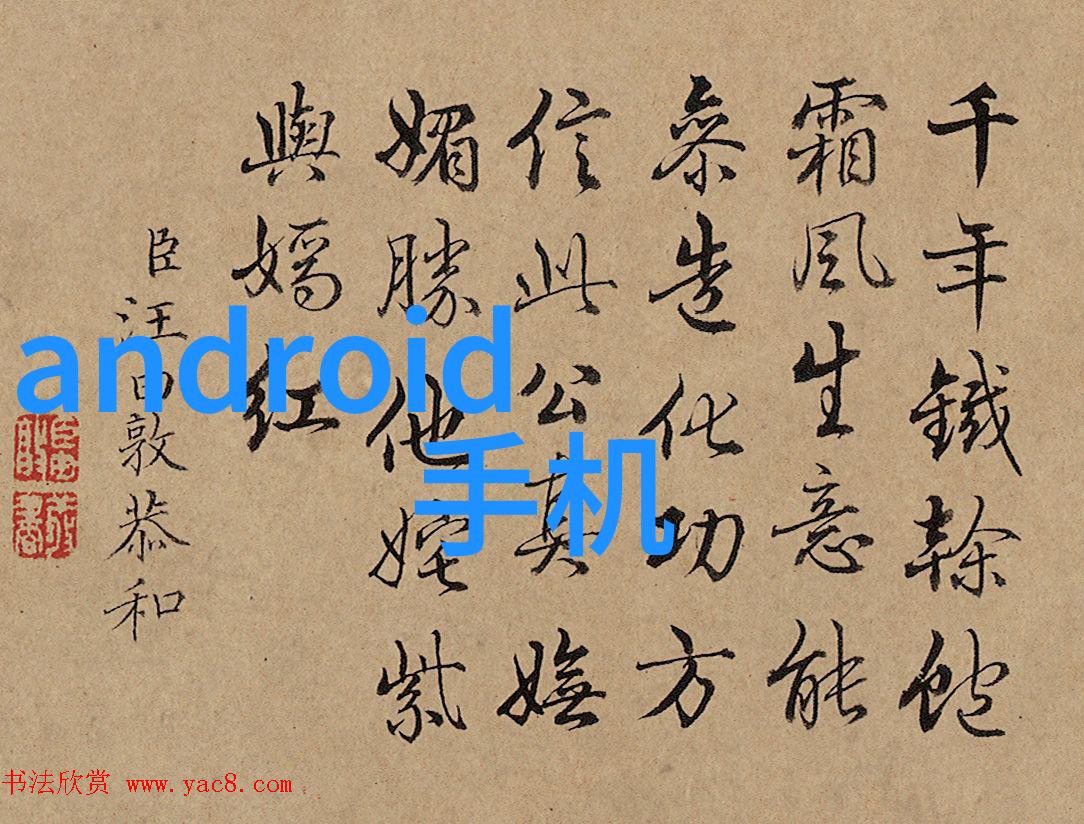 千年鐵榦飽
霜風生意能
叅造化功方
信此公真嫵
媚勝他姹紫
與嫣紅
臣汪由敦恭和
android
手机
书法欣赏 www.yac8.com